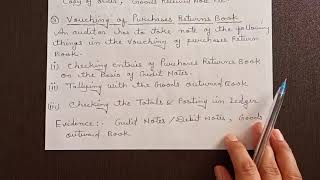 Copy of order, Goods Received Note etc.
③ Vouching of Purchases Returns Book
An auditor has to take note of the following
things in the Vouching of purchases Return
Book.
(i) Checking Entries of Purchases Returns Book
on the Basis of Credit Notes.
(ii) Tallying with the Goods outward Book
(iii) Checking the Totals & Posting in Ledger
Evidence:- Credit Notes/Debit Notes, Goods
outward Book